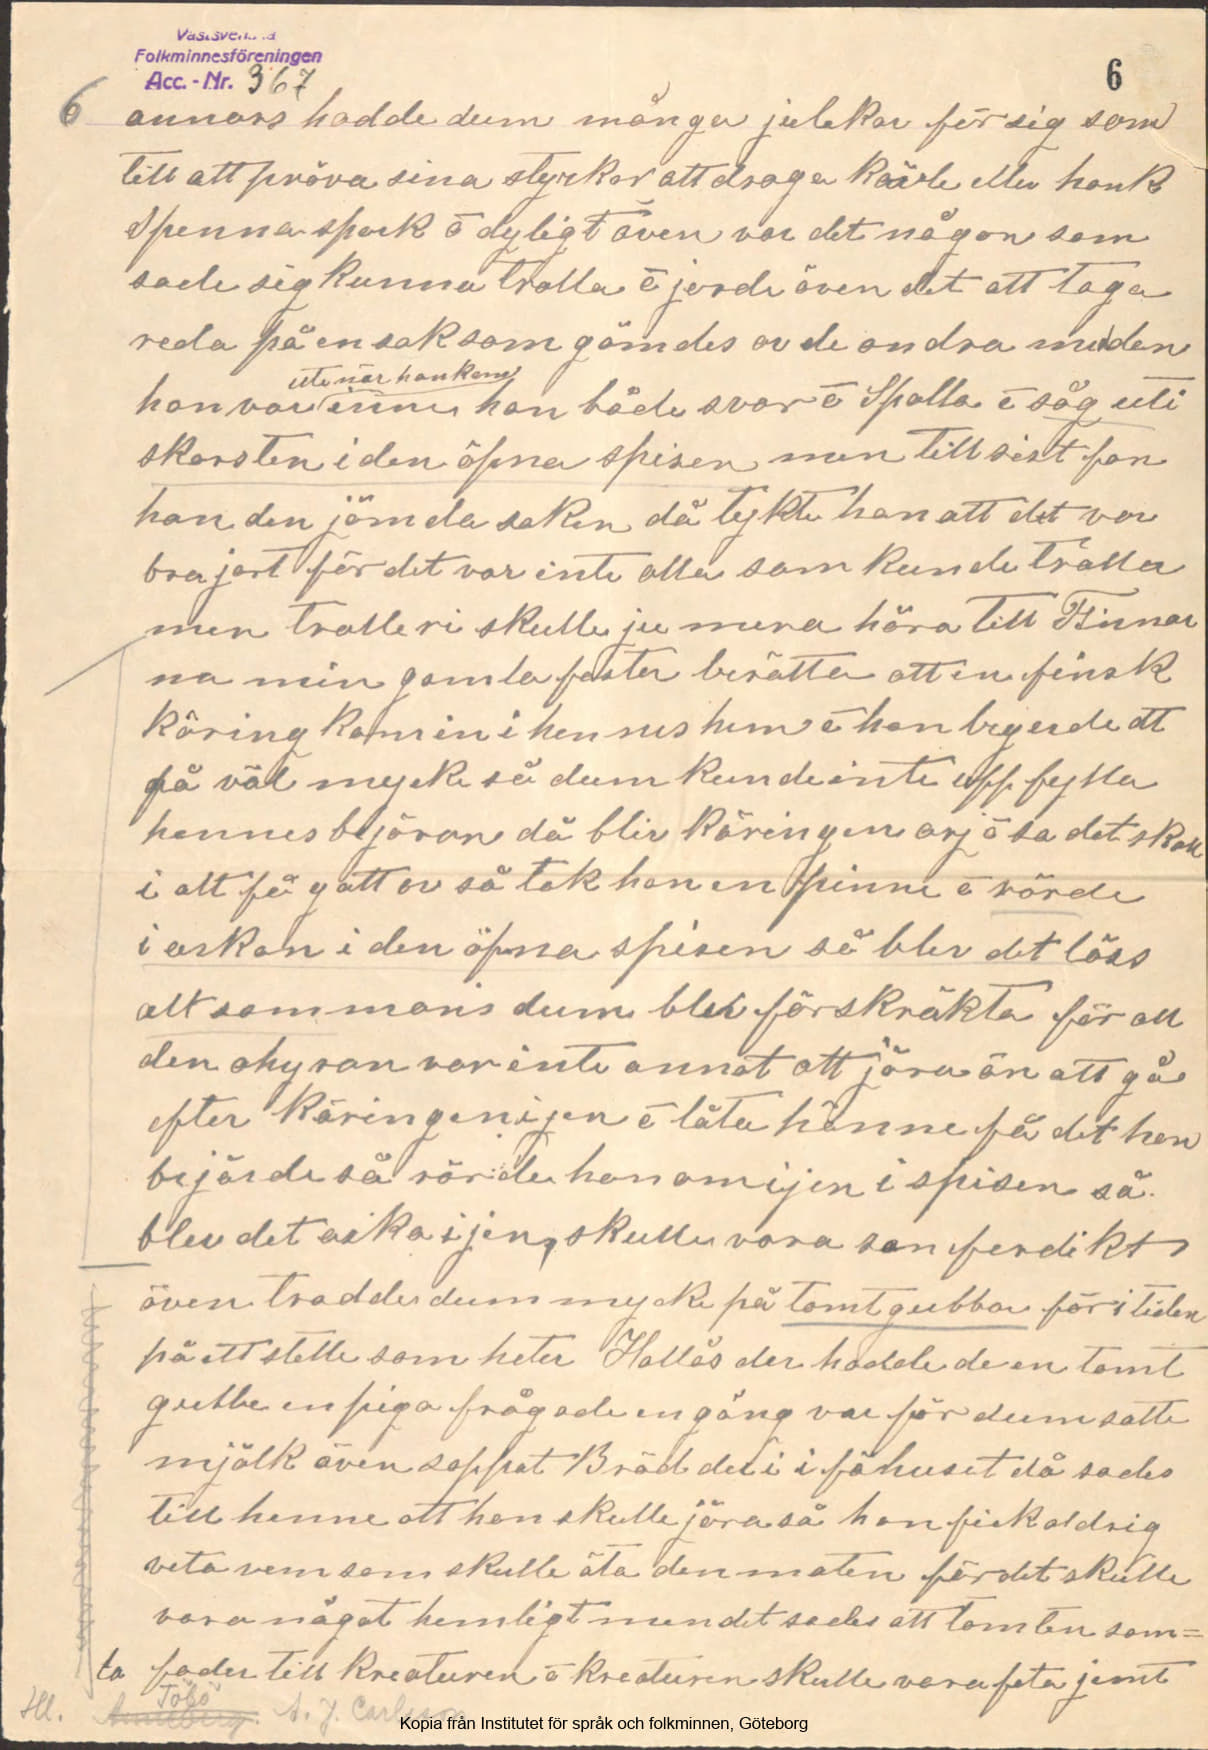 Västsvenska
Folkminnesföreningen
Acc. - Nr. 367
6
6
annars hadde dum många julekar för sig som
till att pröva sina styrkor att draga kavle eller hank
Spenna spark ö dyligt även var det någon som
sade sig kunna trolla ö jorde även det att taga
reda på en sak som gömdes av de andra medan
ute när han kom
han var inne han både svor ö Spotta ö såg uti
skorsten i den öpna spisen men till sist fan
han den jömda saken då tykte han att det var
bra jort för det var inte alla som kunde trolla
men trolleri skulle ju mera höra till Finnar
na min gamla faster berätta att en finsk
käring kom in i hennes hem ö hon begerde att
få väl mycke så dum kunde inte uppfylla
hennes bejäran då blir käringen arj ö sa det skall
i att få gått av så tok hon en pinne ö rörde
i askan i den öpna spisen så blev det löss
alt sammans dum blev förskräkta för all
den ohyran var inte annat att jöra än att gå
efter käringen ijen ö låta hänne få det hon
bejärde så rörde hon om ijen i spisen så
blev det aska ijen, skulle vara san ferdikt
även trodde dum mycke på tomtgubbar för i tiden
på ett stelle som heter Hallås der hadde de en tomt
gubbe en piga frågade en gång var för dum satte
mjölk även soppat Bröd der i i fähuset då sades
till henne att hon skulle jöra så hon fick aldrig
veta vem som skulle äta den maten för det skulle
vara något hemligt men det sades att tomten som=
ta foder till kreaturen ö kreaturen skulle vara feta jemt
Hl.
Tölö
A. J. Carlsson
Kopia från Institutet för språk och folkminnen, Göteborg